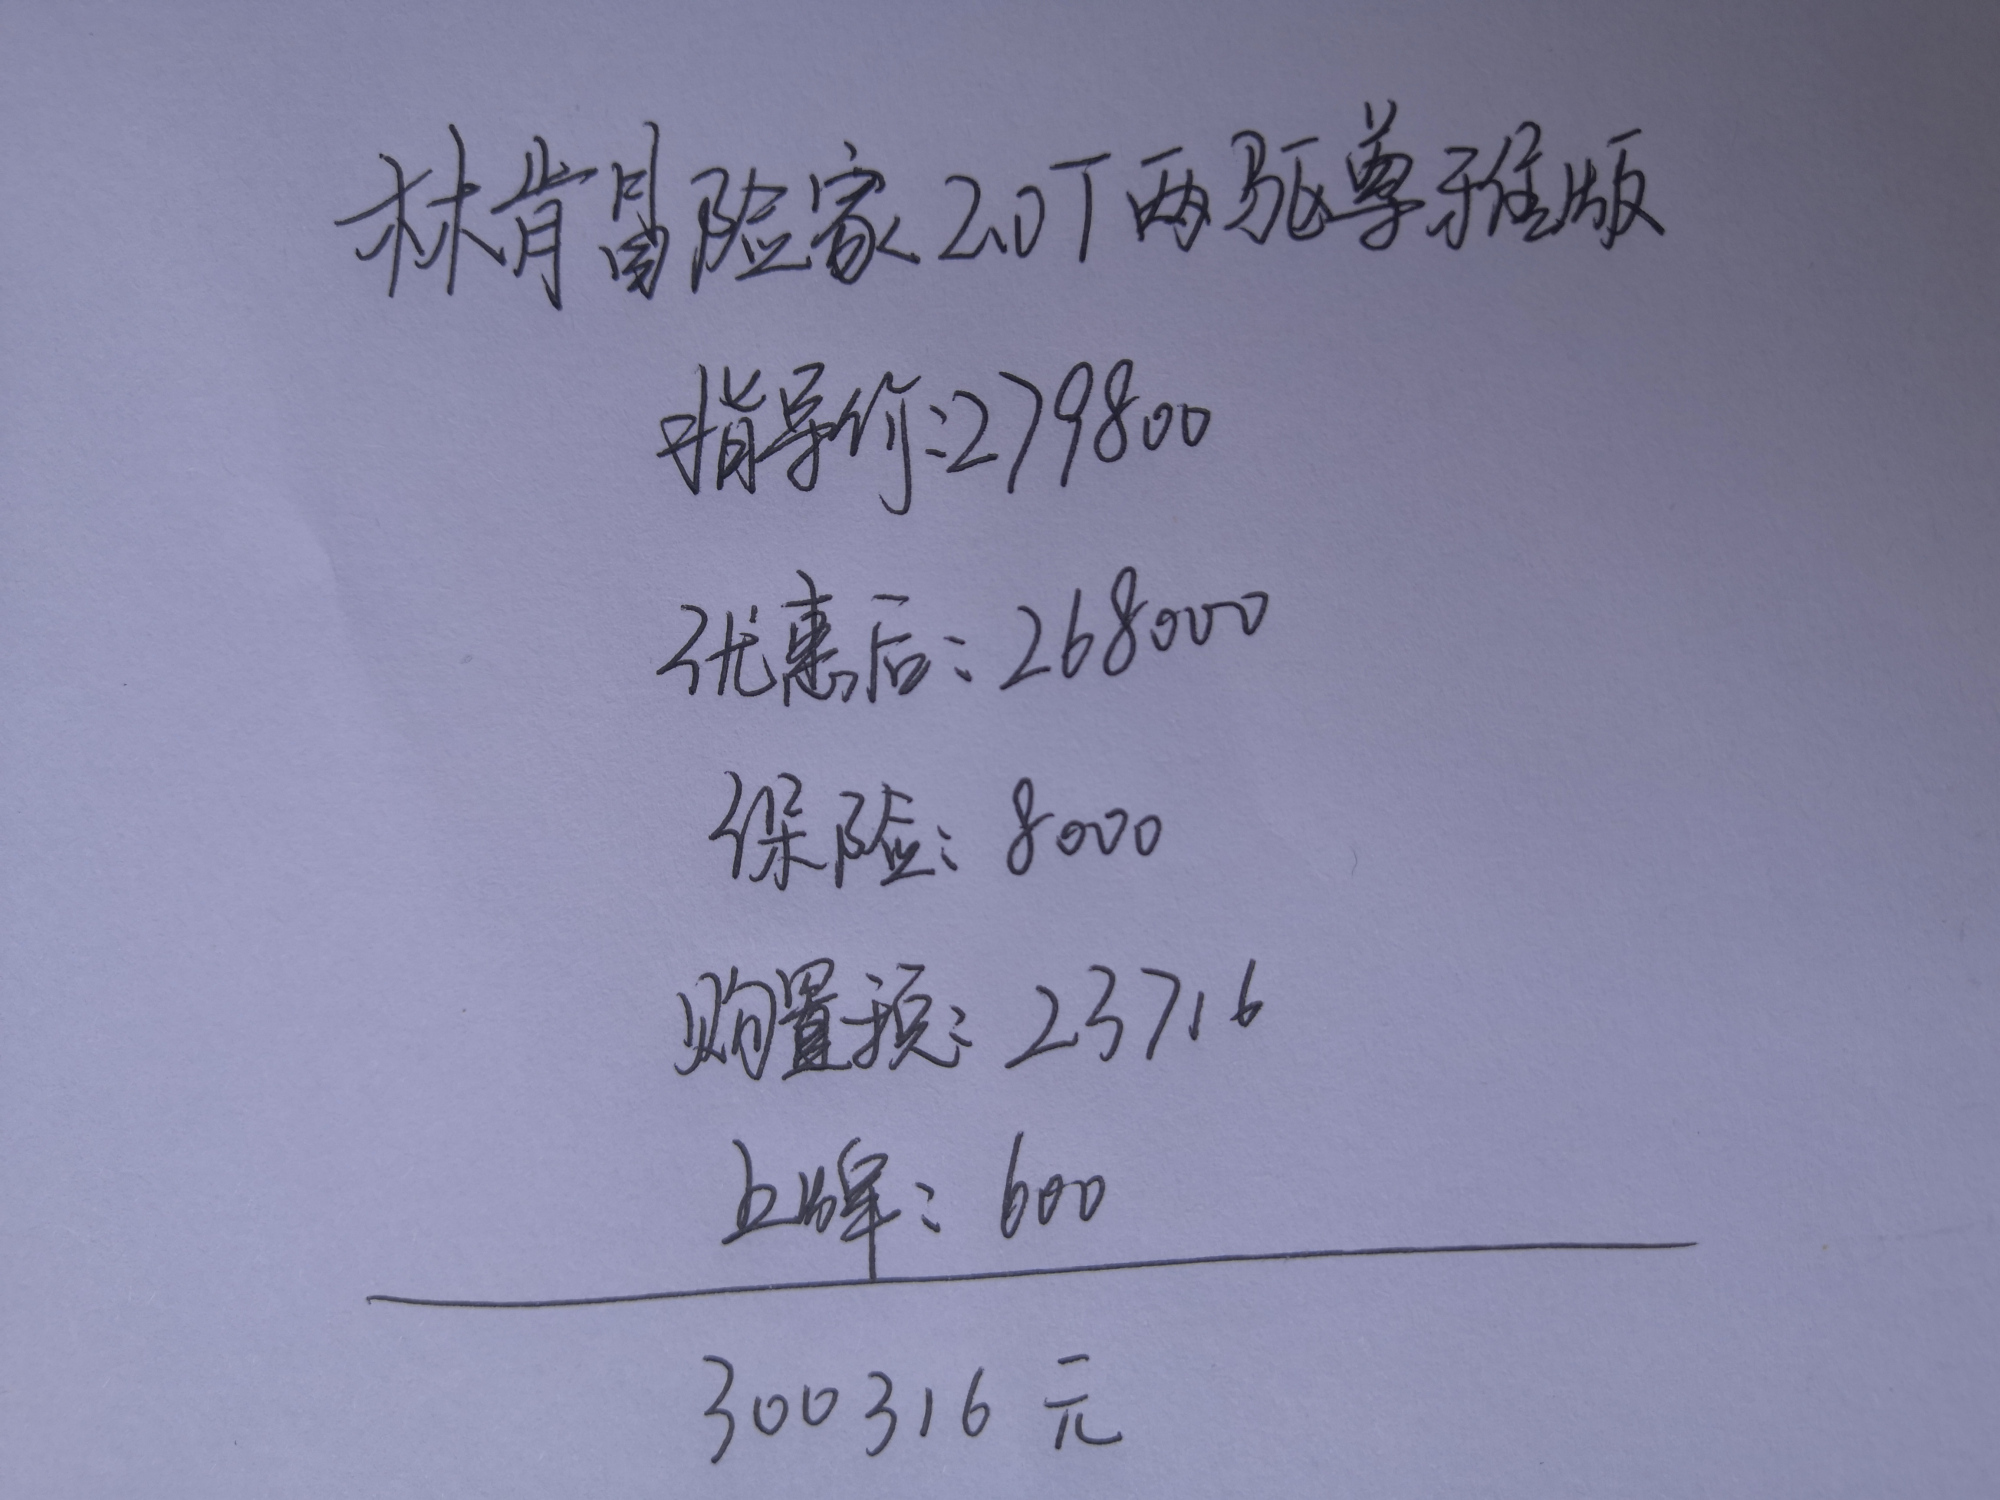 林肯冒险家2.0T两驱尊雅版
指导价:279800
优惠后:268000
保险:8000
购置税:23716
上牌:600
300316元